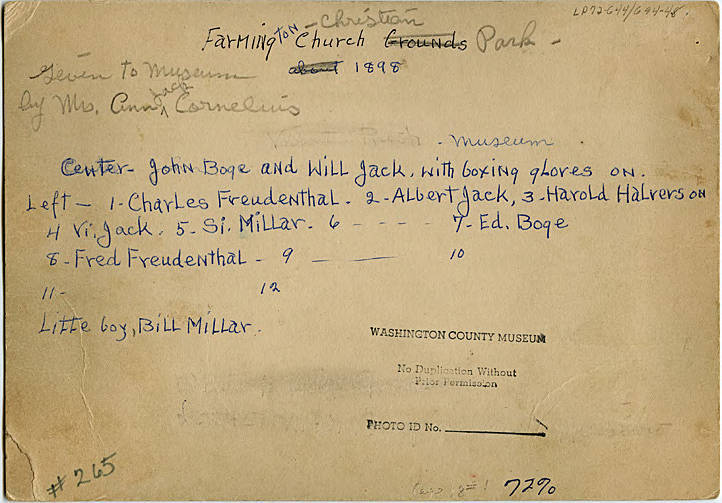 LP72-644/644-48.
Christian
Farmington Church Grounds Park -
about 1898
Given To Museum
by Mrs. Ann Jack Cornelius
Museum
Center - John Boge and Will Jack, with boxing gloves on.
Left - 1 - Charles Freudenthal - 2 - Albert Jack, 3 - Harold Halverson
4 Vi. Jack - 5 - Si. Millar - 6 - - - - 7 - Ed. Boge
8 - Fred Freudenthal - 9 ——— 10
11 - 12
Litte boy, Bill Millar.
WASHINGTON COUNTY MUSEUM
No Duplication Without
Prior Permission
PHOTO ID No.
#265
72%